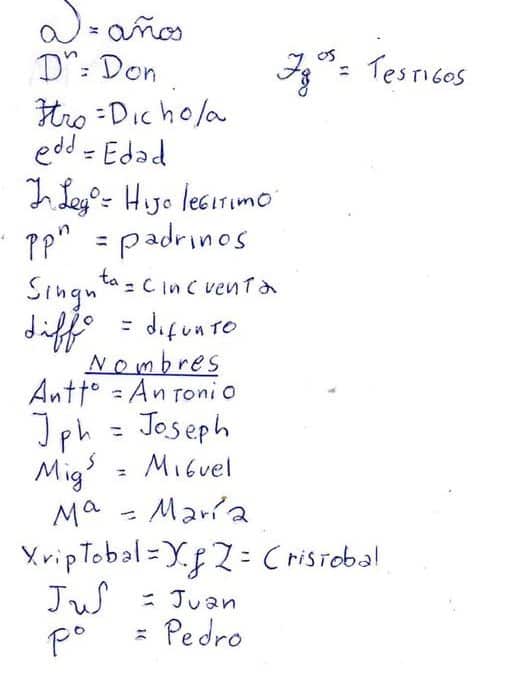 a) = años
Dⁿ = Don
Tgᵒˢ = Testigos
Htro = Dicho/a
eᵈᵈ = Edad
h Legᵒ = Hijo legitimo
ppⁿ = padrinos
Singnᵗᵃ = Cincuenta
diffᵒ = difunto
Nombres
Anttᵒ = Antonio
Jph = Joseph
Migˢ = Miguel
Mᵃ = María
XripTobal = X.f Z = Cristobal
Juſ = Juan
Pᵒ = Pedro